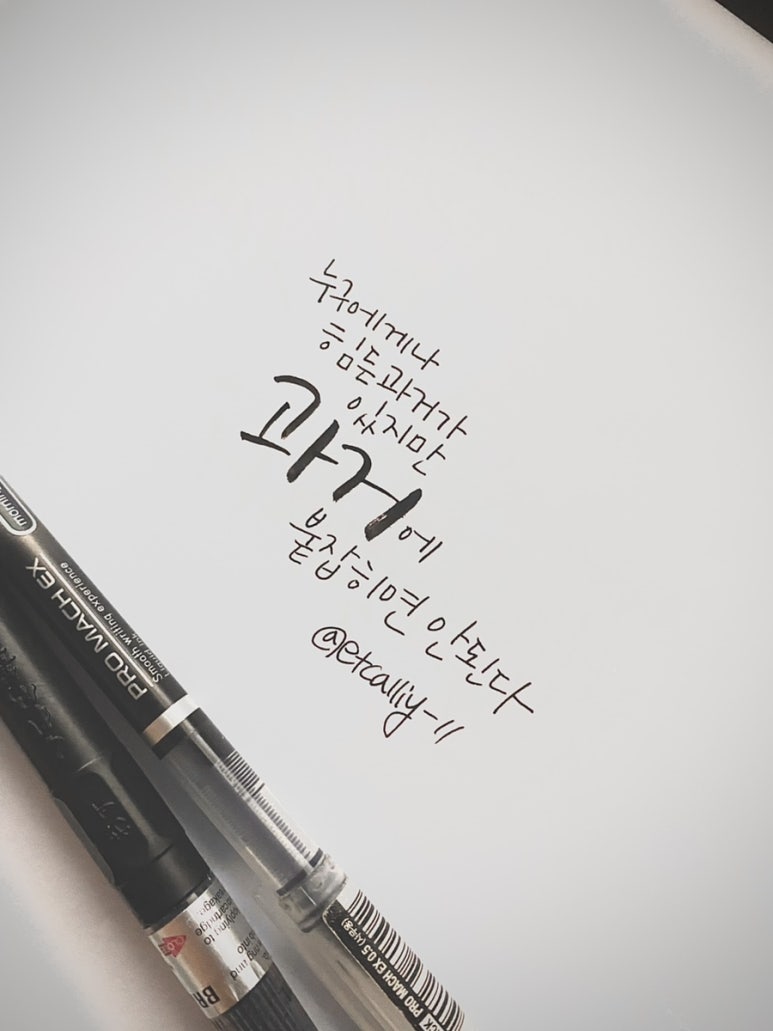 누구에게나
힘든과거가
있지만
과거에
붙잡히면 안된다
@etcalliy-11
morning
PRO MACH EX
Smooth writing experience
Liquid ink
PRO MACH EX 0.5 (사무용)